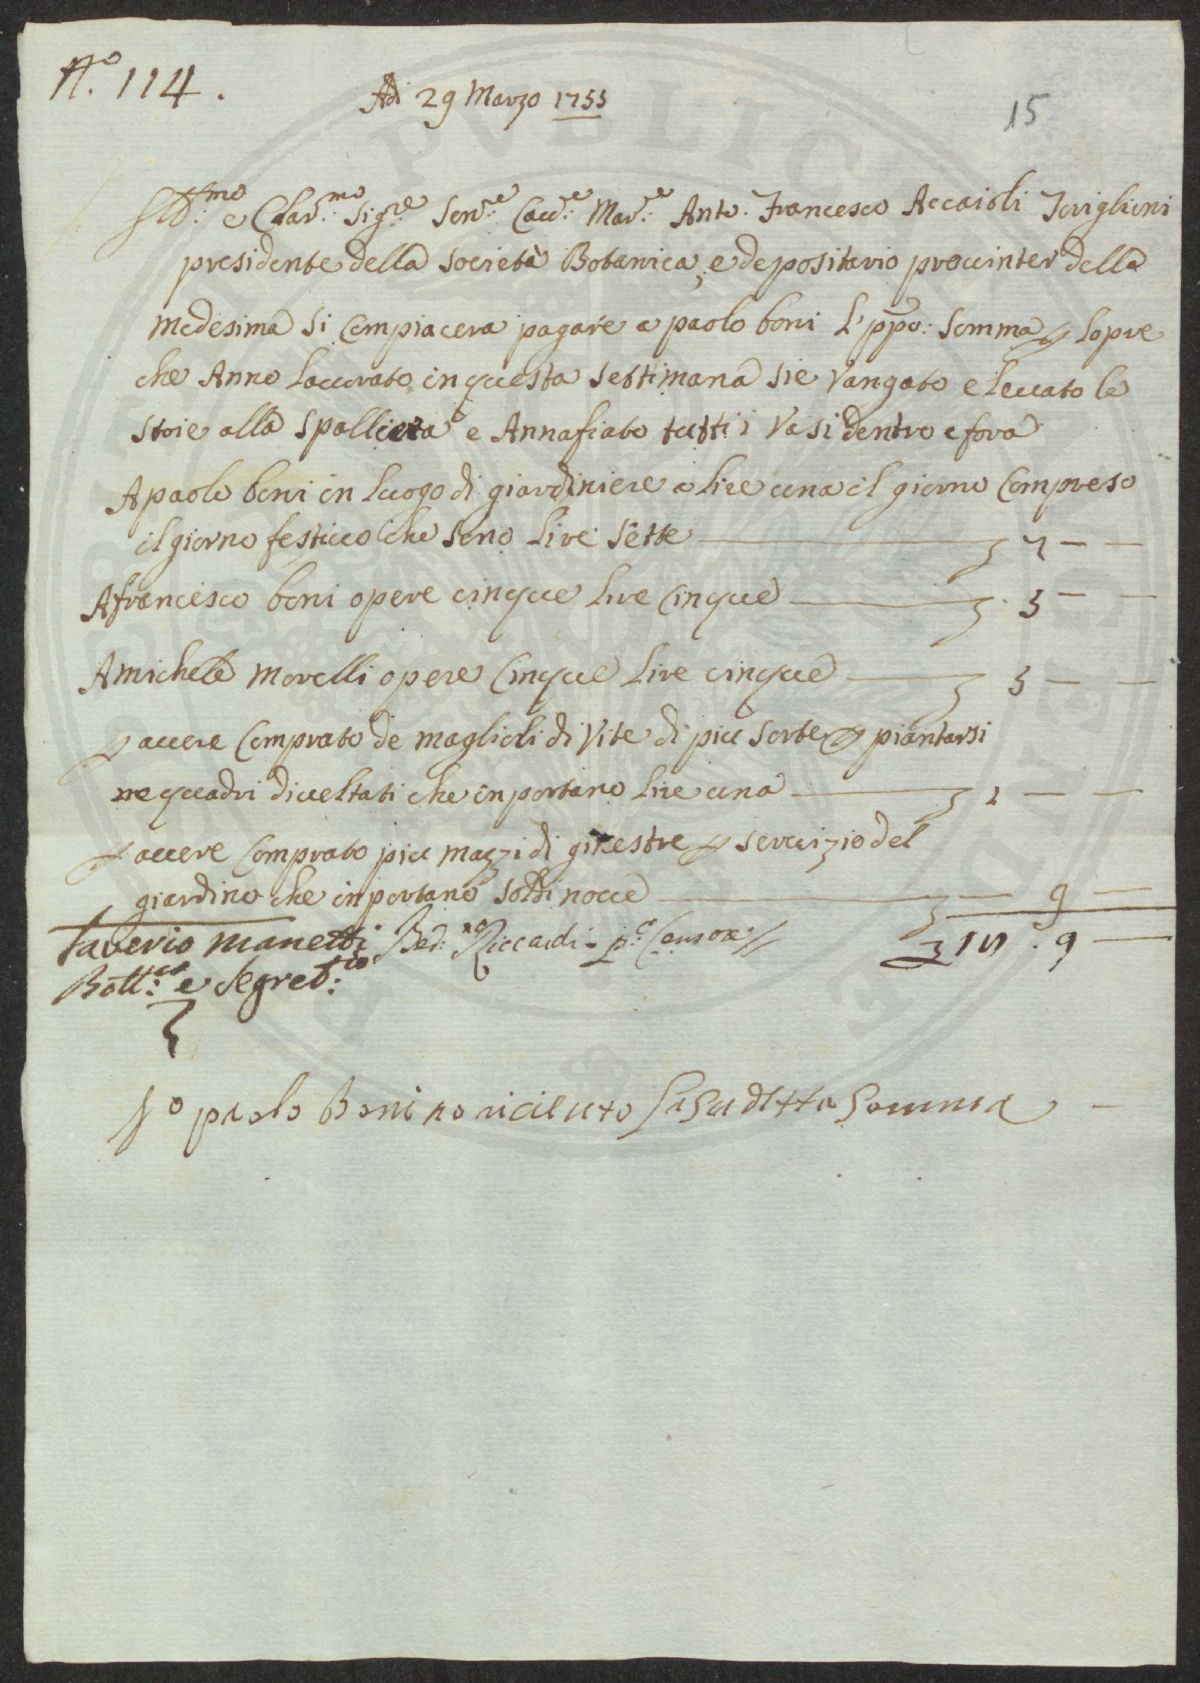 N.º 114.
Adì 29 Marzo 1755
15
Ill:mo e Clar:mo Sig:re Sen:re Cav:re Mar:se Anto. Francesco Accaioli Toriglioni
presidente della Società Botanica, e depositario provinter della
medesima si Compiacera pagare a paolo boni l'ppo: Somma p lopre
che Anno lavorato in questa settimana sie Vangato e levato le
stoie alla Spalliera e Annafiato tutti i Vasi dentro e fora
A paolo boni in luogo di giardiniere a lire una il giorno Compreso
il giorno festivo che sono lire sette 7 — —
A francesco boni opere cinque lire Cinque 5 — —
A michele morelli opere Cinque lire cinque 5 — —
p avere Comprato de maglioli di Vite di piu sorte p piantarsi
ne quadri diveltati che inportano lire una 1 — —
p avere Comprato piu mazzi di ginestre p servizio del
giardino che inportano soldi nove — 9 —
Saverio Manetti Bed:no Riccardi p:o Censore 18 . 9 —
Bott:co e Segret:rio
Io paolo Boni ho riceuto la sudetta Somma —